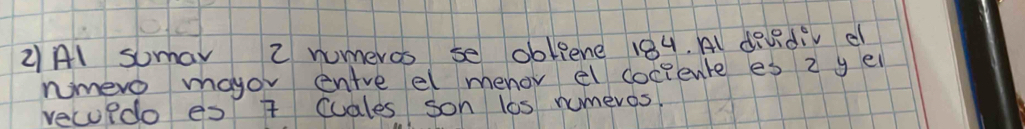 2) Al sumar 2 numeros se obtiene 184. Al dividir el
numero mayor entre el menor el cociente es 2 y el
recuido es 7 Cuales son los numeros.